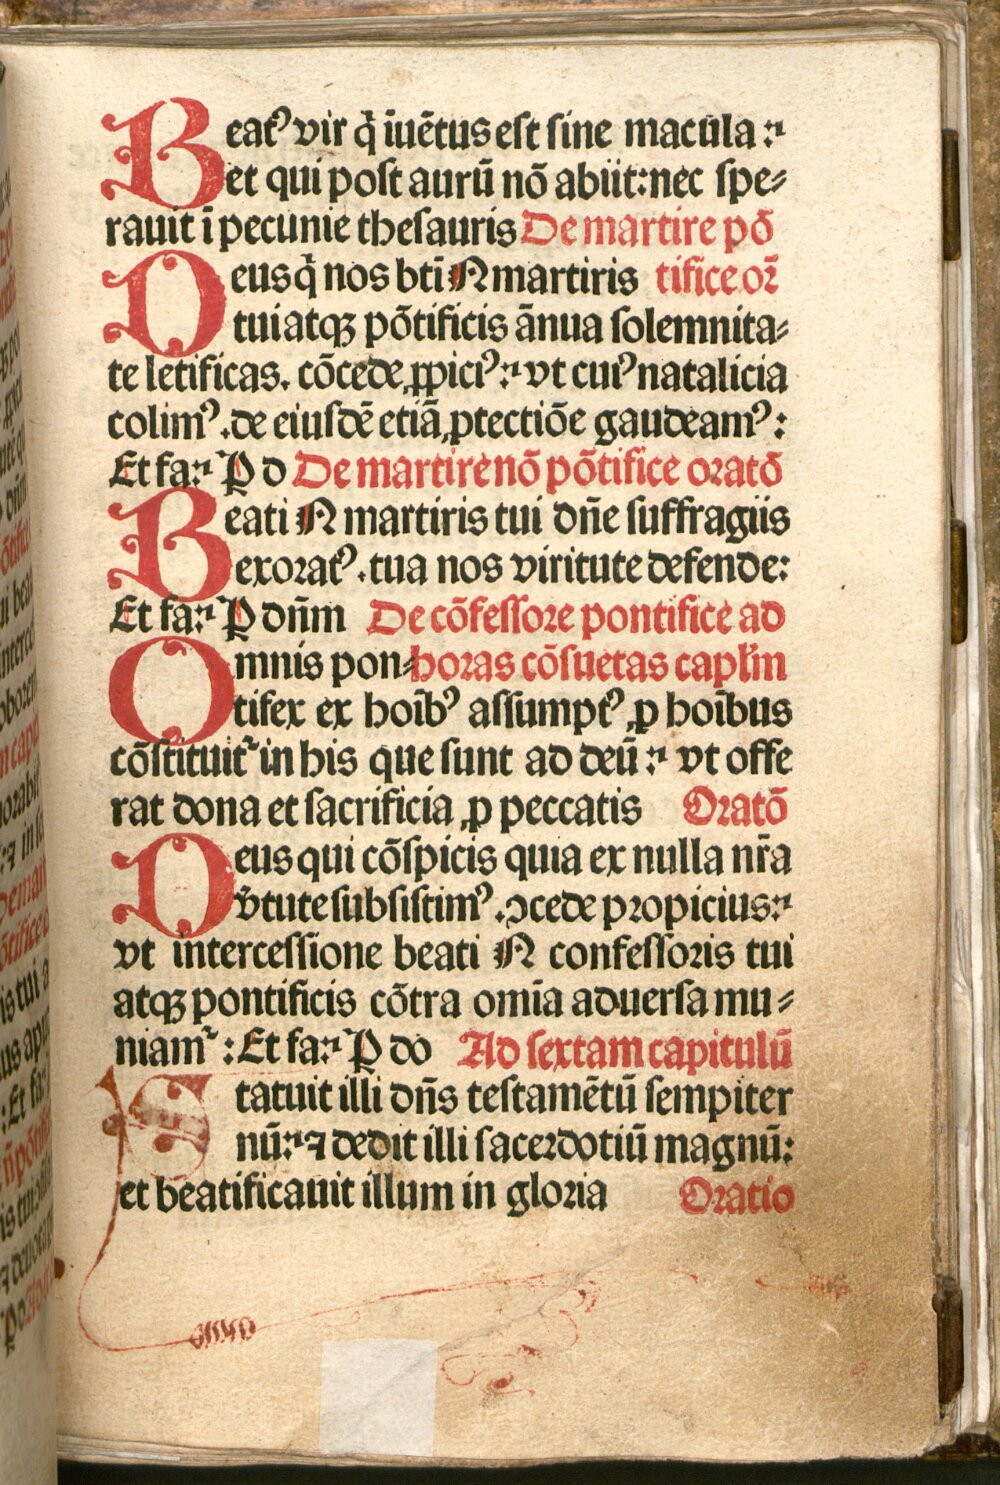 Beatꝰ vir q̄ īuētus est sine macula ⁊
et qui post aurū nō abiit: nec spe⸗
rauit ī pecunie thesauris De martire pō
Deus q̄ nos btī N martiris tifice. or̄
tui atqꝫ pōtificis ānua solemnita⸗
te letificas. cōcede ꝓpiciꝰ: ⁊ vt cuiꝰ natalicia
colimꝰ. de eiusdē etiā ꝓtectiōe gaudeamꝰ:
Et fa: ⁊ P d De martire nō pōtifice oratō
Beati N martiris tui dn̄e suffragiis
exoratꝰ. tua nos viritute defende:
Et fa: ⁊ P dn̄m De cōfessore pontifice ad
Omnis pon⸗ horas cōsuetas capl'm
tifex ex hoīb' assumptꝰ ꝓ hoībus
cōstituit' in his que sunt ad deū: ⁊ vt offe
rat dona et sacrificia ꝓ peccatis Oratō
Deus qui cōspicis quia ex nulla nr̄a
v̄tute subsistimꝰ. ꝯcede propicius: ⁊
vt intercessione beati N confessoris tui
atqꝫ pontificis cōtra omīa aduersa mu⸗
niam': Et fa: ⁊ P do Ad sextam capitulū
Statuit illi dn̄s testamētū sempiter
nū: ⁊ ⁊ dedit illi sacerdotiū magnū:
et beatificauit illum in gloria Oratio